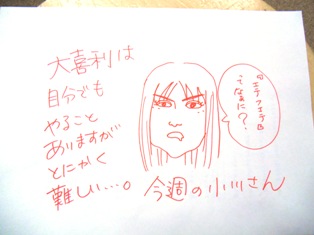 大喜利は
自分でも
やること
ありますが
とにかく
難しい…。
って
なぁに？
今週の小川さん